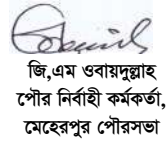 জি,এম ওবায়দুল্লাহ
পৌর নির্বাহী কর্মকর্তা,
মেহেরপুর পৌরসভা